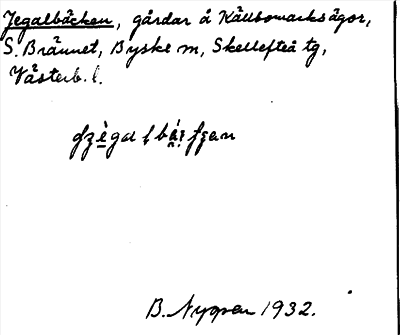 Jegalbäcken, gårdar å Källbomarks ägor,
S. Brännet, Byske m, Skellefteå tg,
Västerb. l.
B. Nygren 1932.